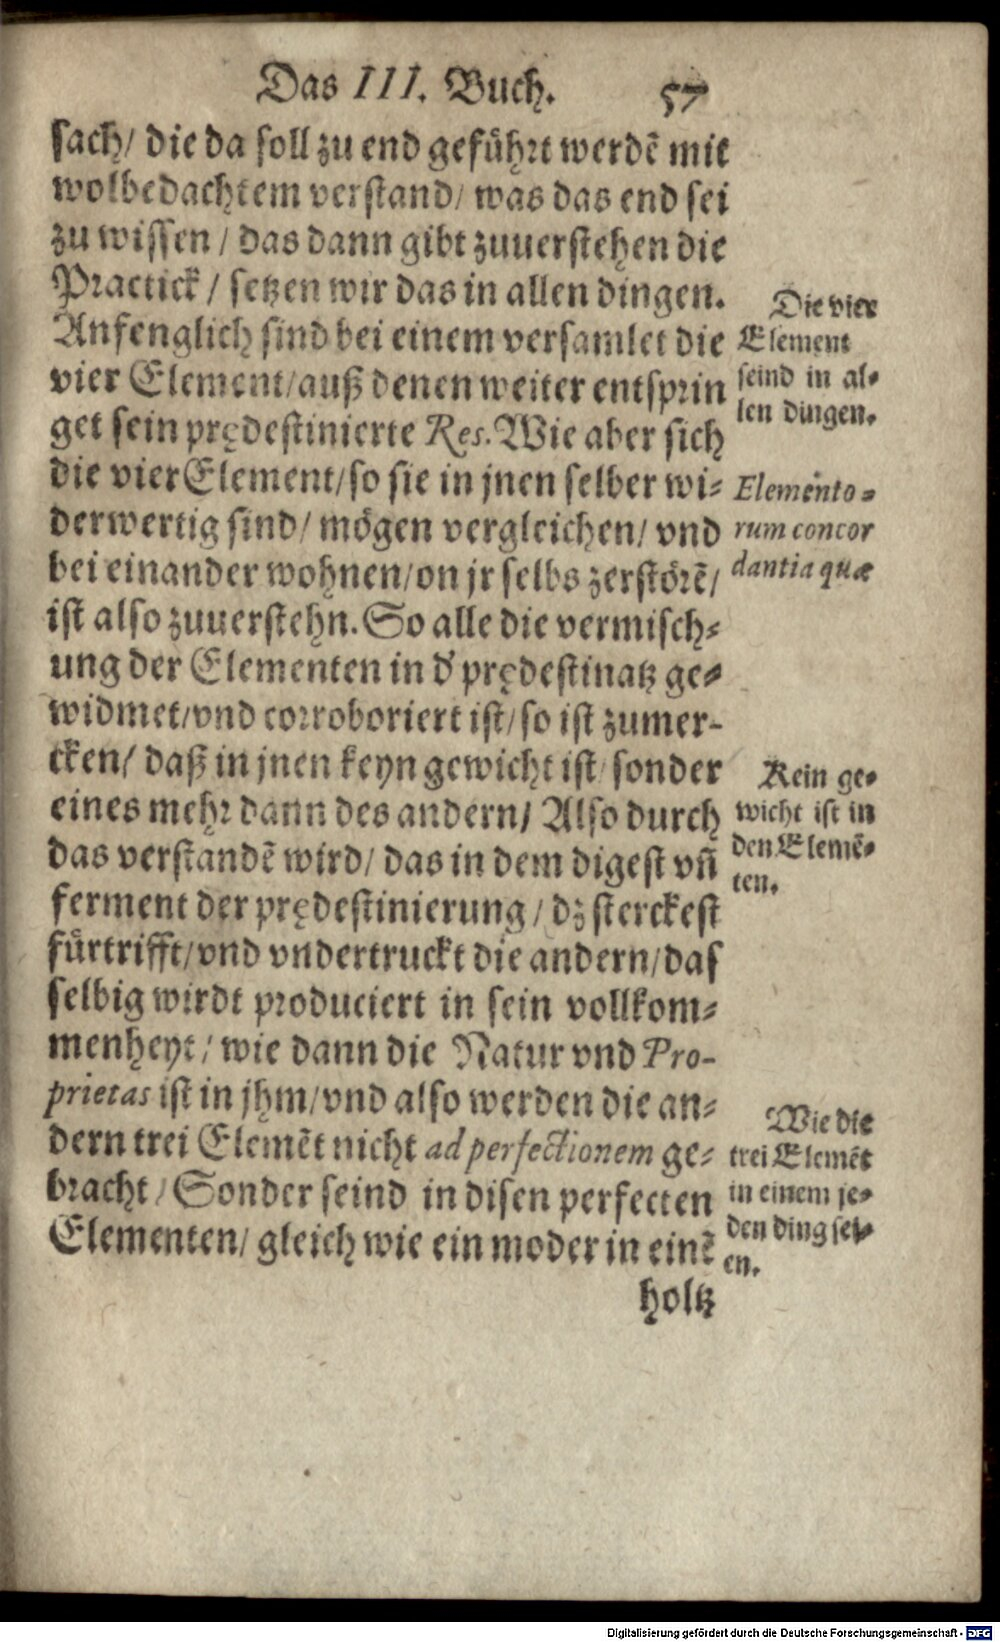 Das III. Buch. 57
sach/ die da soll zu end geführt werdē mit
wolbedachtem verstand/ was das end sei
zu wissen / das dann gibt zuuerstehen die
Practick / setzen wir das in allen dingen.
Anfenglich sind bei einem versamlet die
vier Element/auß denen weiter entsprin
get sein prędestinierte Res. Wie aber sich
die vier Element/so sie in jnen selber wi-
derwertig sind/ mögen vergleichen/ vnd
bei einander wohnen/on jr selbs zerstörē/
ist also zuuerstehn. So alle die vermisch-
ung der Elementen in d' prędestinatz ge-
widmet/vnd corroboriert ist/so ist zumer-
cken/ daß in jnen keyn gewicht ist/ sonder
eines mehr dann des andern/ Also durch
das verstandē wird/ das in dem digest vñ
ferment der prędestinierung / dz sterckest
fürtrifft/vnd vndertruckt die andern/das
selbig wirdt produciert in sein vollkom-
menheyt/ wie dann die Natur vnd Pro-
prietas ist in jhm/vnd also werden die an-
dern trei Elemēt nicht ad perfectionem ge-
bracht/ Sonder seind in disen perfecten
Elementen/ gleich wie ein moder in einē
holtz
Die vier
Element
seind in al-
len dingen.
Elemento-
rum concor
dantia quæ
Kein ge-
wicht ist in
den Elemē-
ten.
Wie die
trei Elemēt
in einem je-
den ding sei-
en.
Digitalisierung gefördert durch die Deutsche Forschungsgemeinschaft - DFG